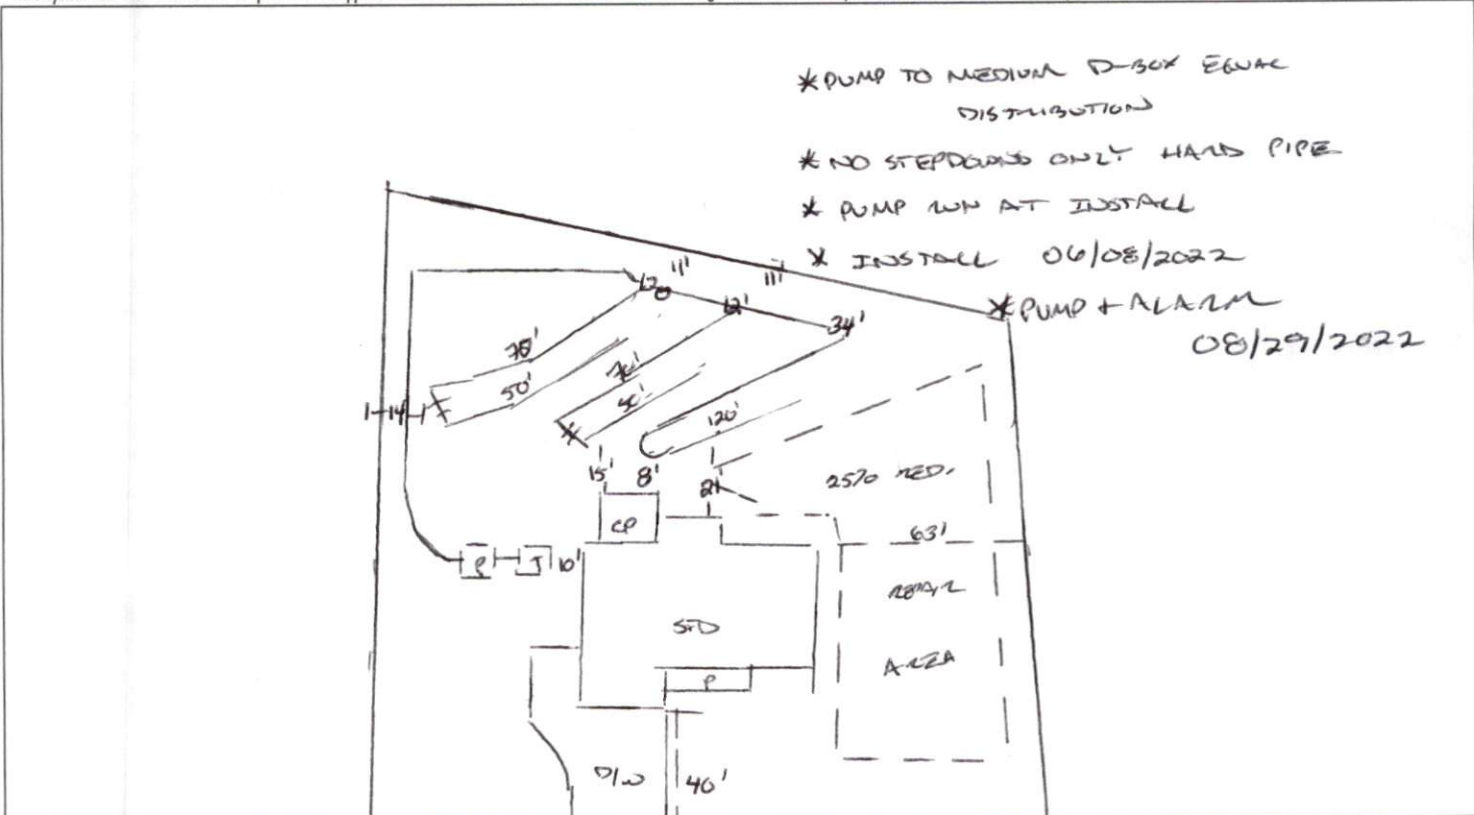 *PUMP TO MEDIUM D-BOX EQUAL
DISTRIBUTION
*NO STEPDOWNS ONLY HARD PIPE
* PUMP RUN AT INSTALL
* INSTALL 06/08/2022
*PUMP + ALARM
08/29/2022
11'
11'
12'
34'
50'
50'
120'
14
15'
8'
21'
25% RED.
CP
63'
P
T
10'
REPAIR
STD
AREA
P
D/W
40'